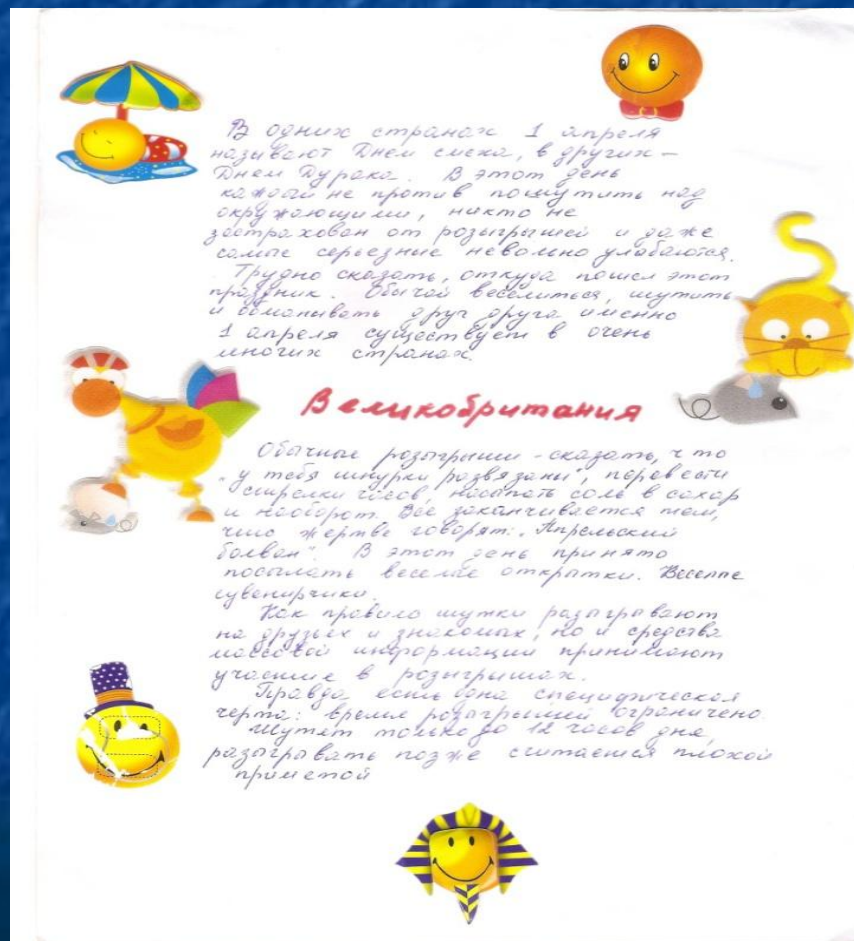 В одних странах 1 апреля
называют Днем смеха, в других –
Днем Дурака. В этот день
каждый не против пошутить над
окружающими, никто не
застрахован от розыгрышей и даже
самые серьезные невольно улабаются.
Трудно сказать, откуда пошел этот
праздник. Обычай веселиться, шутить
и обманывать друг друга именно
1 апреля существует в очень
многих странах.
Великобритания
Обычные розыгрыши - сказать, что
"у тебя шнурки развязаны", перевести
стрелки часов, насыпать соль в сахар
и наоборот. Все заканчивается тем,
что жертве говорят: "Апрельский
болван". В этот день принято
посылать веселые открытки. Веселые
сувенирчики.
Как правило шутки разыгрывают
на друзьях и знакомых, но и средства
массовой информации принимают
участие в розыгрышах.
Правда есть одна специфическая
черта: время розыгрышей ограничено.
Шутят только до 12 часов дня,
разыгрывать позже считается плохой
приметой